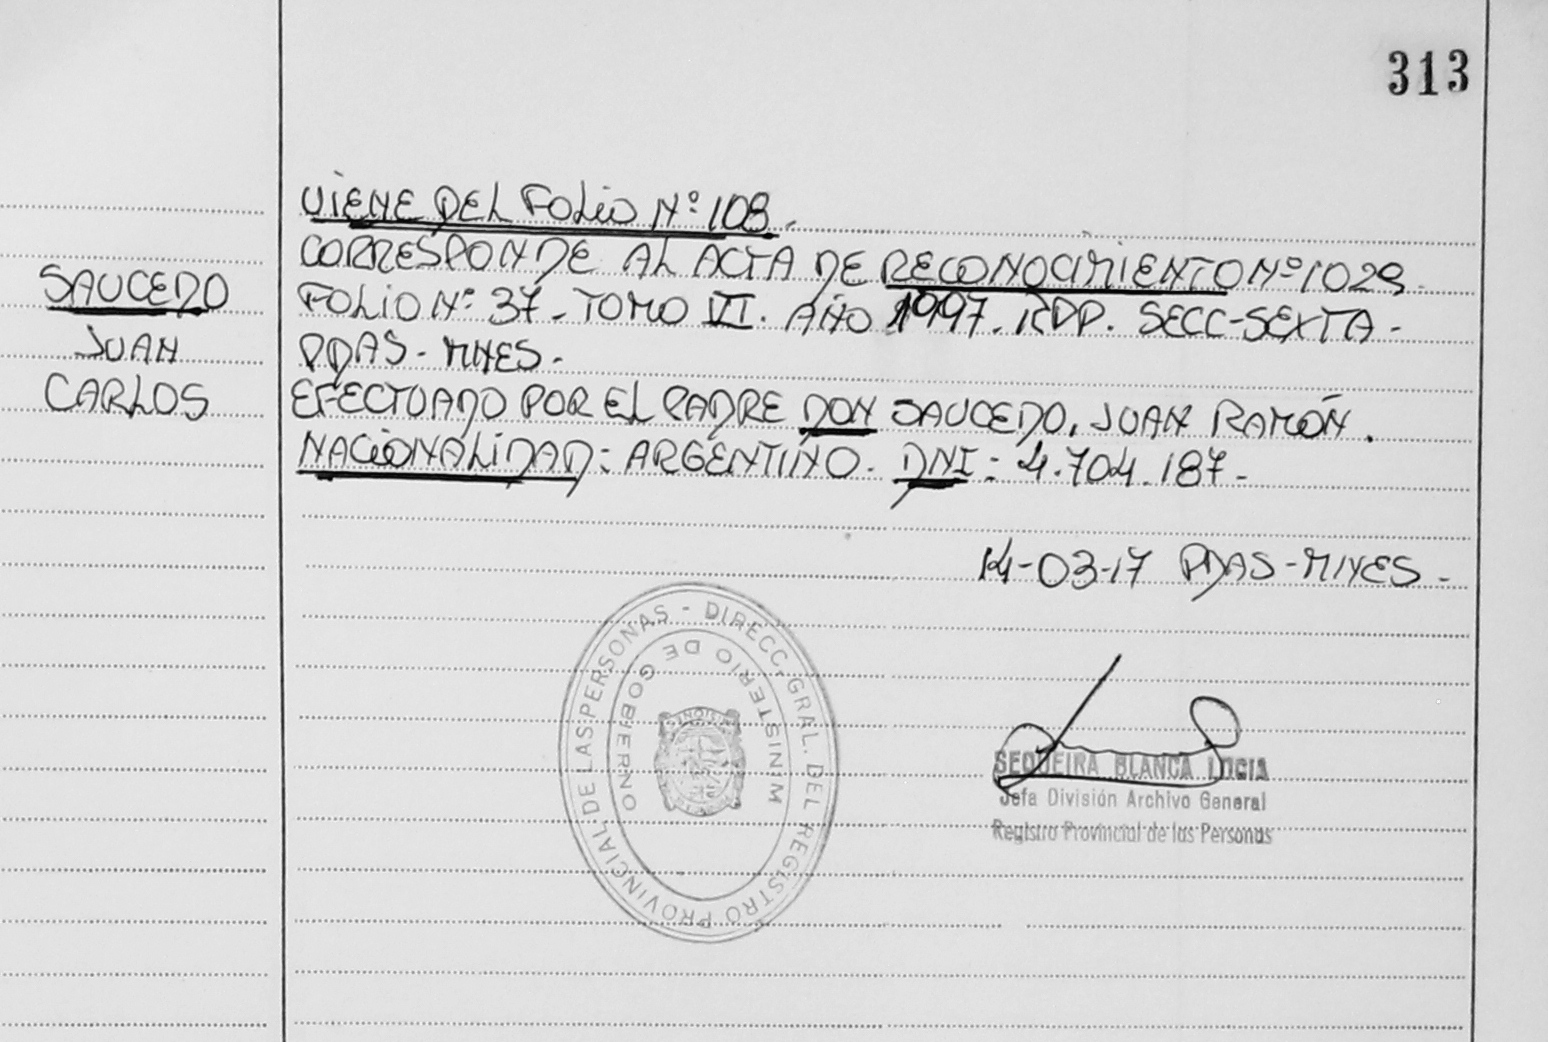 313
VIENE DEL FOLIO Nº 108.
CORRESPONDE AL ACTA DE RECONOCIMIENTO Nº 1029
SAUCEDO
FOLIO Nº 37. TOMO VI. AÑO 1997. RPP. SECC-SEXTA-
JUAN
PDAS-MNES-
CARLOS
EFECTUADO POR EL PADRE DON SAUCEDO, JUAN RAMÓN.
NACIONALIDAD: ARGENTINO. DNI: 4.704.187-
14-03-17 PDAS-MNES-
DIRECC. GRAL. DEL REGISTRO PROVINCIAL DE LAS PERSONAS -
MINISTERIO DE GOBIERNO
MISIONES
SEQUEIRA BLANCA LUCIA
Jefa División Archivo General
Registro Provincial de las Personas